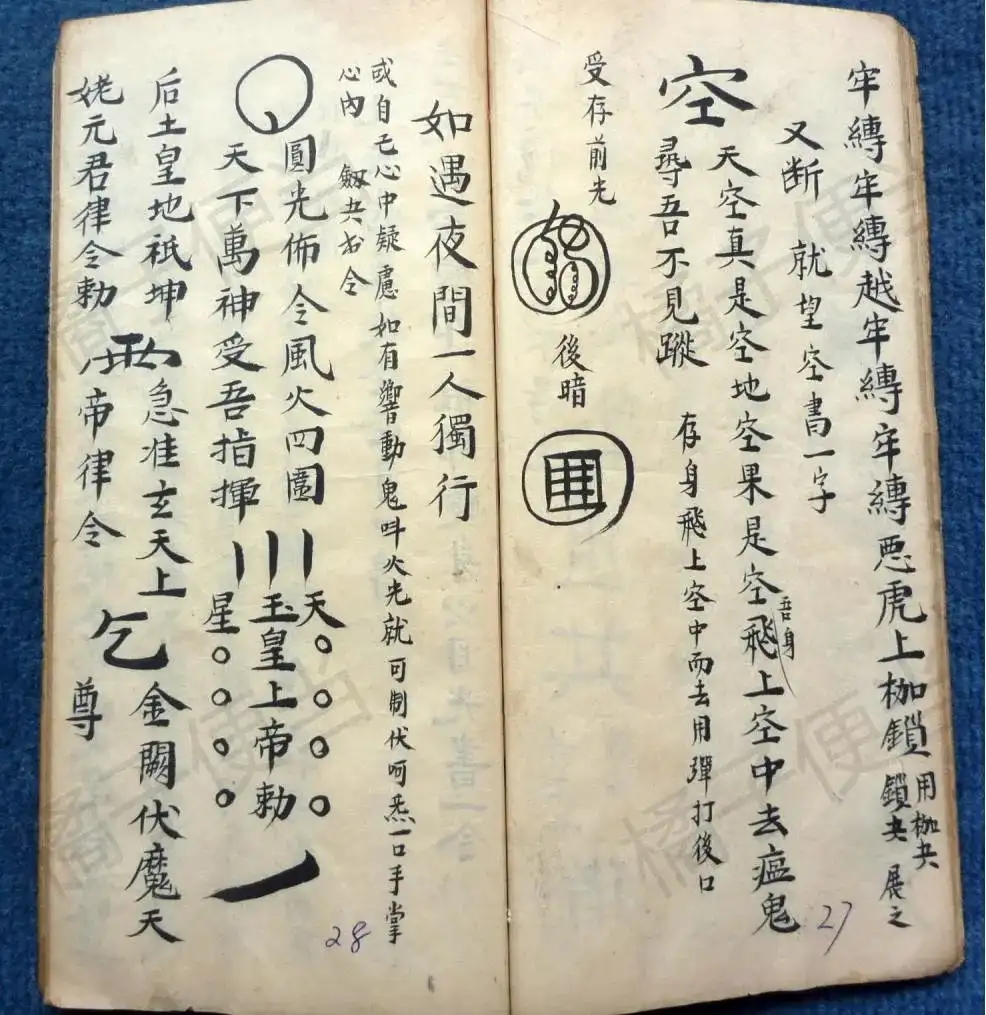 牢縛牢縛越牢縛牢縛惡虎上枷鎖 用枷𠮷 鎖𠮷 展之
又断 就望空書一字
空 天空真是空地空果是空吾身飛上空中去瘟鬼
尋吾不見蹤 存身飛上空中而去用彈打後口
受存前光
後暗
如遇夜間一人獨行
或自己心中疑慮如有響動鬼呌火光就可制伏呵炁一口手掌
心內 書令
圓光佈令風火四圍 天
天下萬神受吾指揮 玉皇上帝勅
星
后土皇地祇坤 急准玄天上
帝律令 金闕伏魔天
尊
姥元君律令勅
27
28
橘子便当